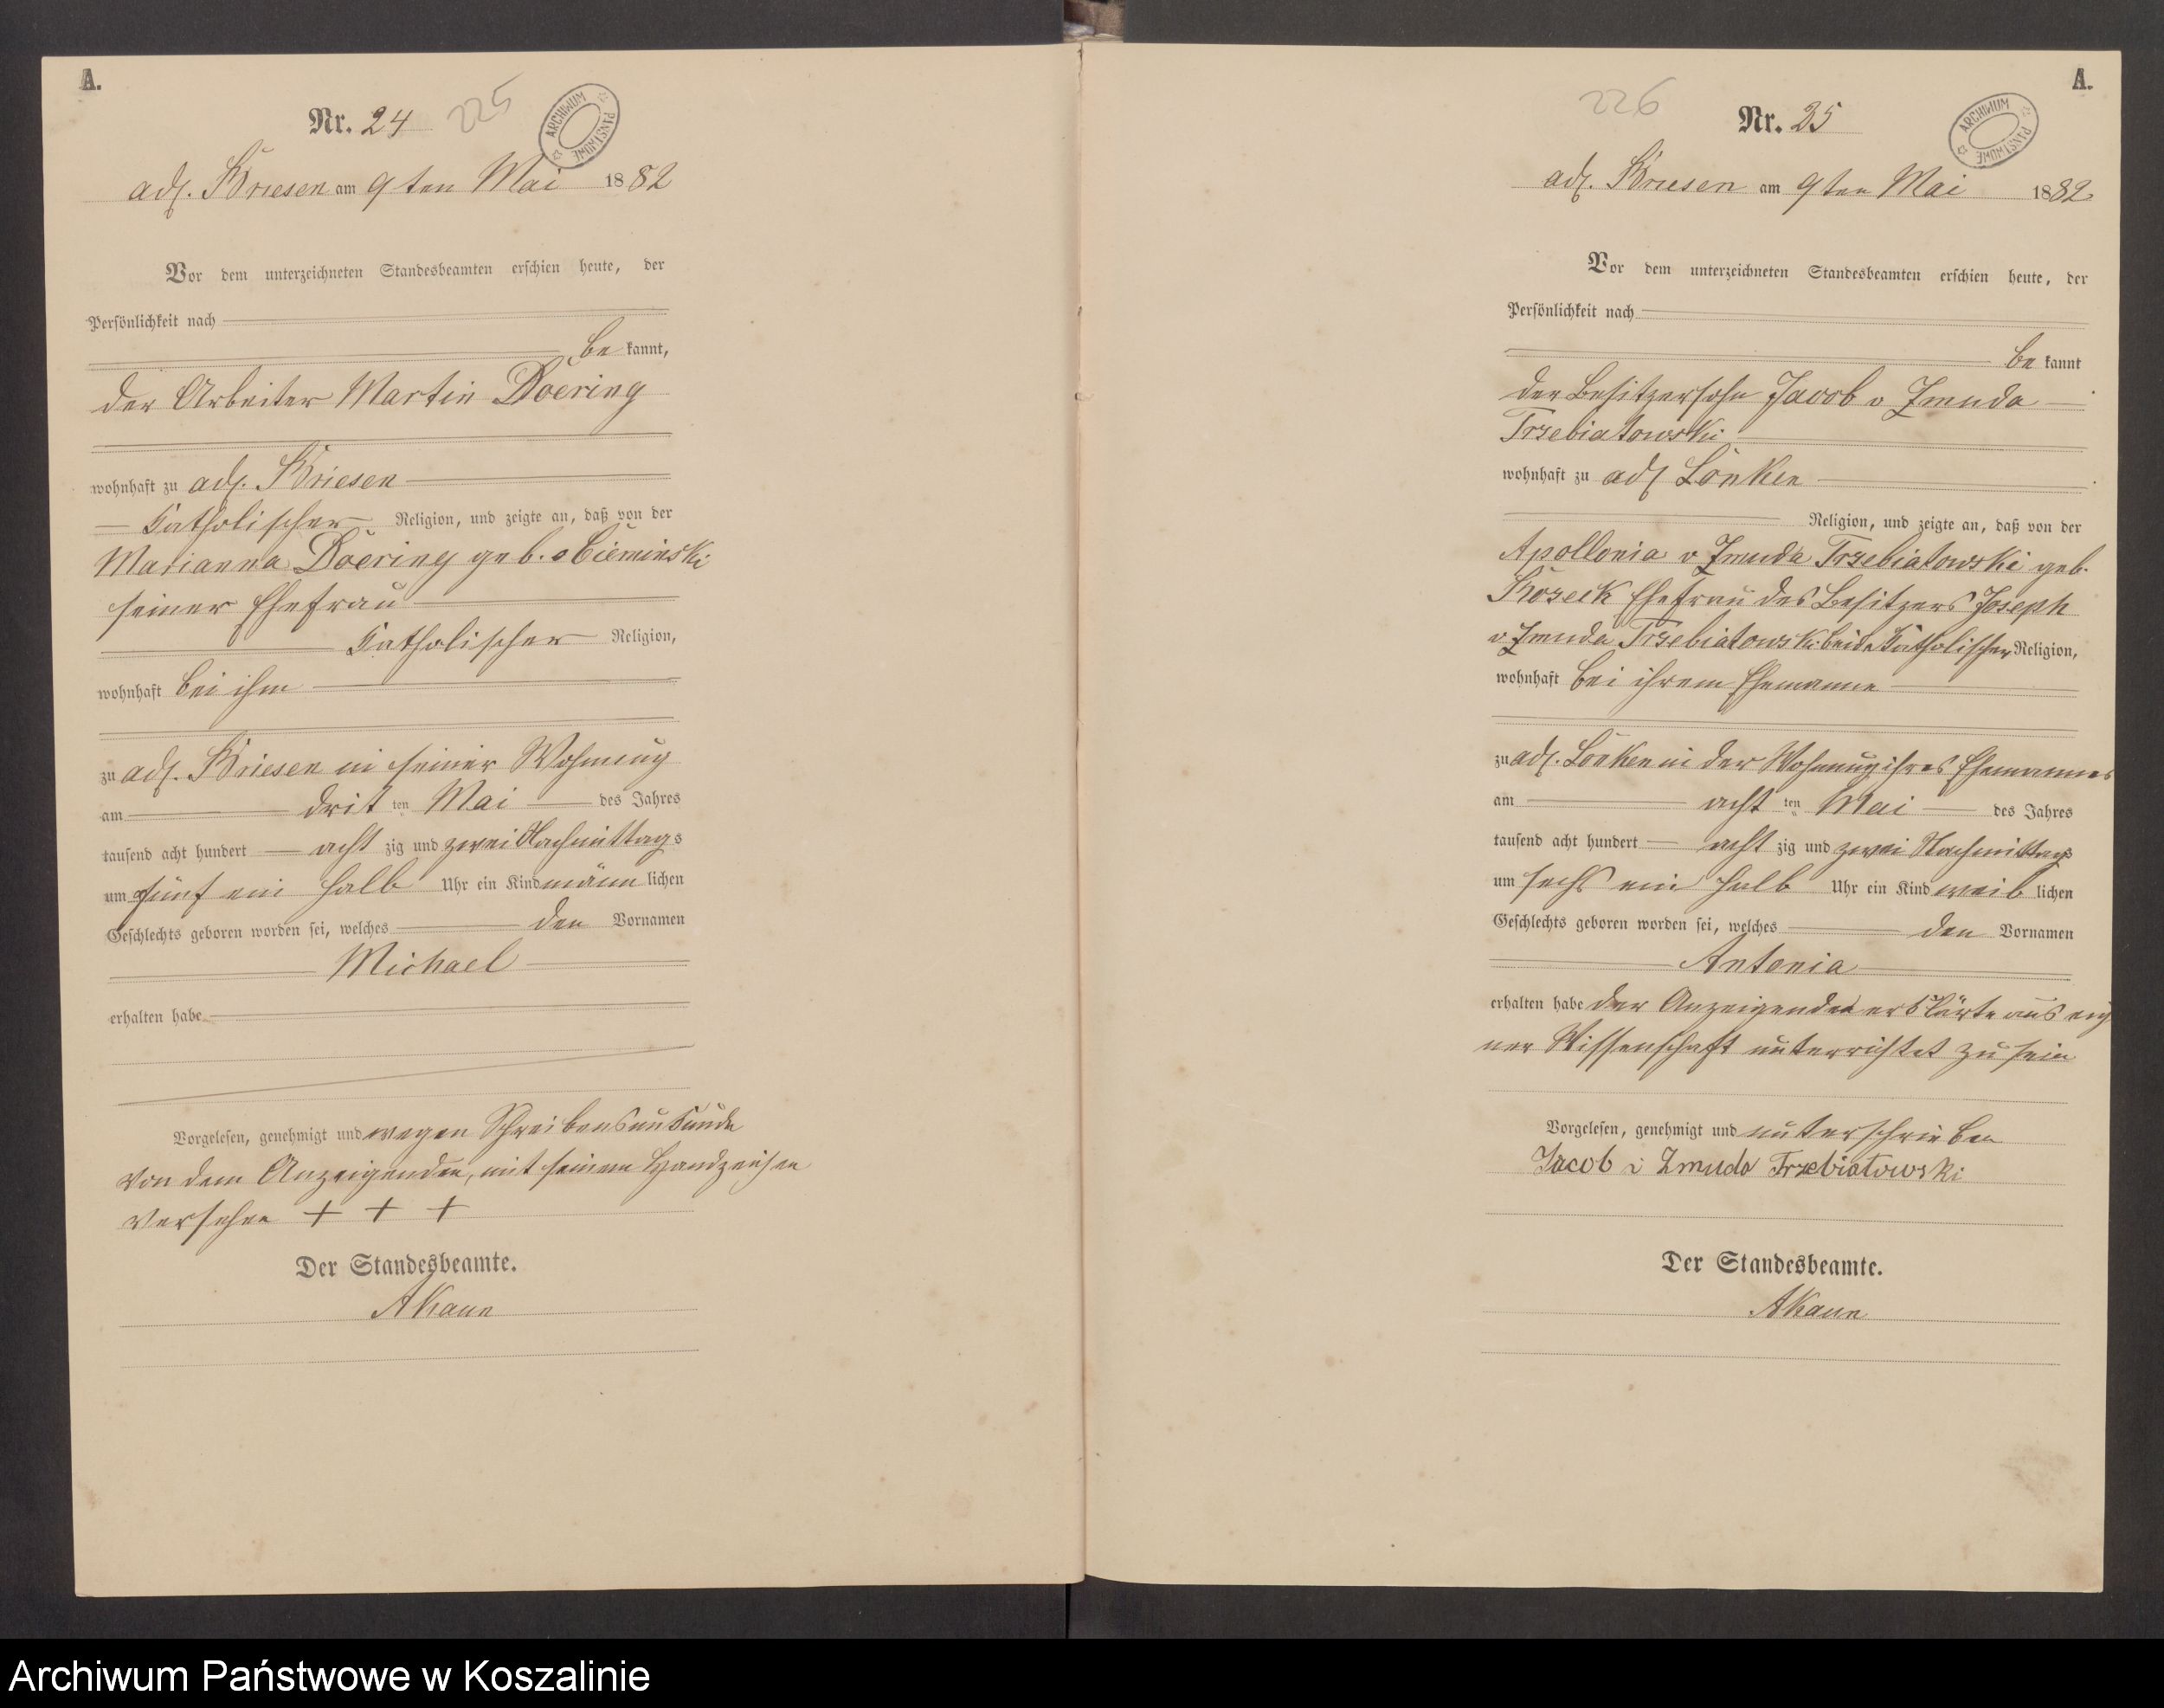 A.
Nr. 24 225
ARCHIWUM PAŃSTWOWE
adl. Briesen am 9ten Mai 1882
Vor dem unterzeichneten Standesbeamten erschien heute, der
Persönlichkeit nach
be kannt,
der Arbeiter Martin Doering
wohnhaft zu adl. Briesen
katholischer Religion, und zeigte an, daß von der
Marianna Doering geb. v Cieminski
seiner Ehefrau
katholischer Religion,
wohnhaft bei ihm
zu adl. Briesen in seiner Wohnung
am dritten Mai des Jahres
tausend acht hundert acht zig und zwei Nachmittags
um fünf ein halb Uhr ein Kind männ lichen
Geschlechts geboren worden sei, welches den Vornamen
Michael
erhalten habe
Vorgelesen, genehmigt und wegen Schreibensunkunde
von dem Anzeigenden, mit seinem Handzeichen
versehen + + +
Der Standesbeamte.
AKaun
A.
226 Nr. 25
ARCHIWUM PAŃSTWOWE
adl. Briesen am 9ten Mai 1882
Vor dem unterzeichneten Standesbeamten erschien heute, der
Persönlichkeit nach
be kannt
der Besitzersohn Jacob v Zmuda
Trzebiatowski
wohnhaft zu adl Lonken
Religion, und zeigte an, daß von der
Apollonia v Zmuda Trzebiatowski geb.
Ehefrau des Besitzers Joseph
v Zmuda Trzebiatowski beide katholischer Religion,
wohnhaft bei ihrem Ehemanne
zu adl. Lonken in der Wohnung ihres Ehemannes
am acht ten Mai des Jahres
tausend acht hundert acht zig und zwei Nachmittags
um sechs ein halb Uhr ein Kind weib lichen
Geschlechts geboren worden sei, welches den Vornamen
Antonia
erhalten habe der Anzeigende erklärte aus eig
ner Wissenschaft unterrichtet zu sein
Vorgelesen, genehmigt und unterschrieben
Jacob v Zmuda Trzebiatowski
Der Standesbeamte.
AKaun
Archiwum Państwowe w Koszalinie